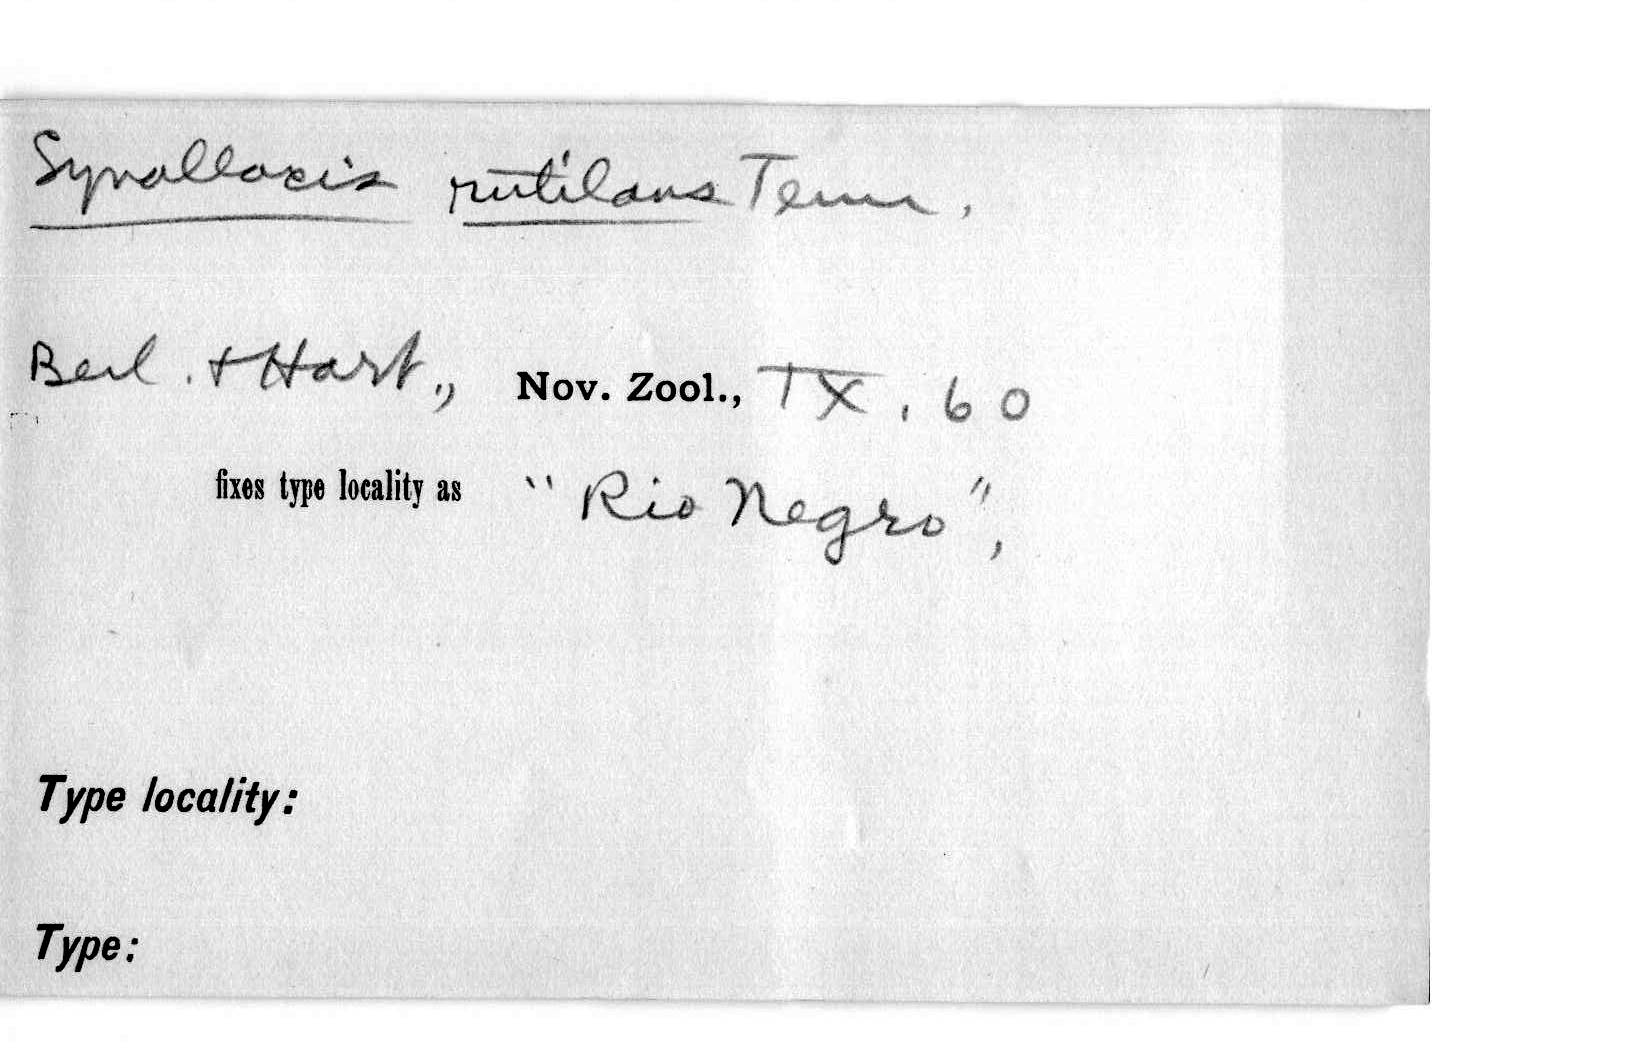 Synallaxis rutilans Temm.
Berl. + Hart., Nov. Zool., IX, 60
fixes type locality as "Rio Negro",
Type locality:
Type: